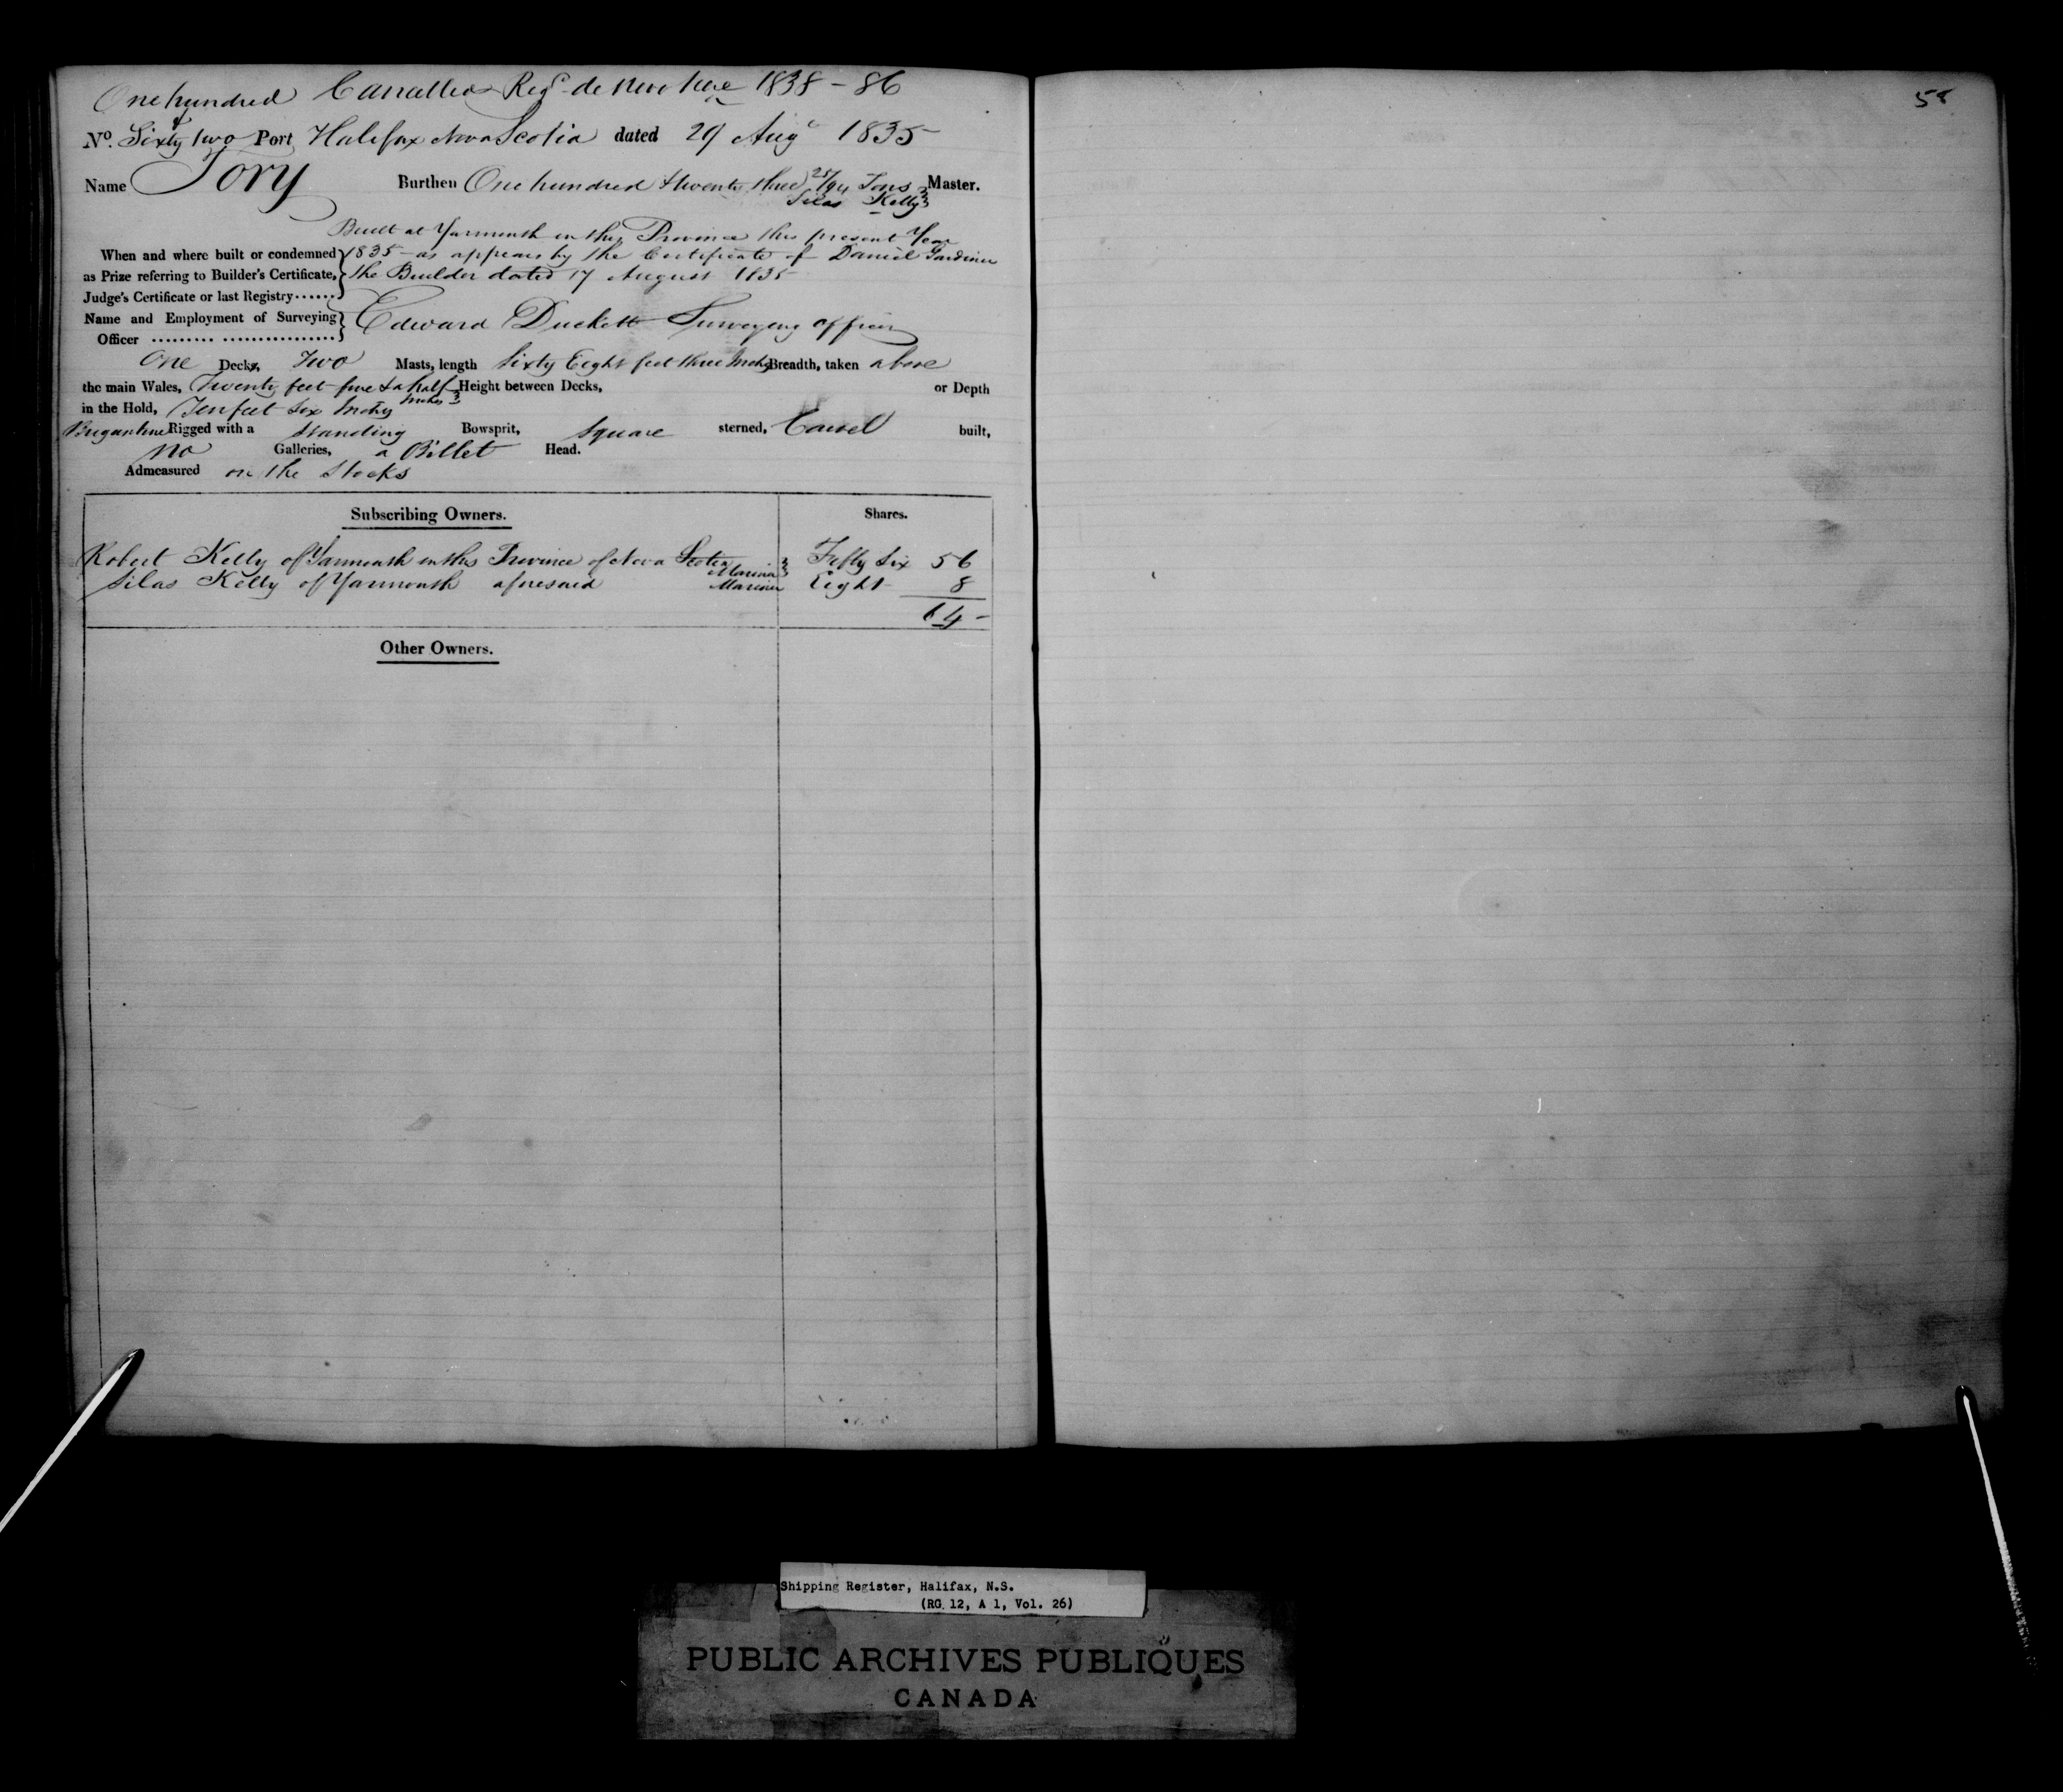 One hundred Cancelled Regd de novo here 1838 - 86
&
No. Sixty two Port Halifax Nova Scotia dated 29 Augt 1835
Name Tory Burthen One hundred & twenty three 25/94 Tons Master.
Silas Kelly
Built at Yarmouth in this Province this present Year
When and where built or condemned 1835 - as appears by the Certificate of Daniel Gardiner
as Prize referring to Builder's Certificate, the Builder dated 17 August 1835
Judge's Certificate or last Registry......
Name and Employment of Surveying Edward Duckett Surveying officer
Officer ......... .................
One Decks, Two Masts, length Sixty Eight feet three Inchs Breadth, taken above
the main Wales, Twenty feet five & a half Height between Decks, or Depth
Inches
in the Hold, Ten feet six Inchs
Brigantine Rigged with a Standing Bowsprit, Square sterned, Carvel built,
no Galleries, a Billet Head.
Admeasured on the Stocks
Subscribing Owners. Shares.
Robert Kelly of Yarmouth in this Province of Nova Scotia Fifty Six 56
Mariner
Silas Kelly of Yarmouth aforesaid Mariner Eight 8
64 -
Other Owners.
58
Shipping Register, Halifax, N.S.
(RG 12, A 1, Vol. 26)
PUBLIC ARCHIVES PUBLIQUES
CANADA